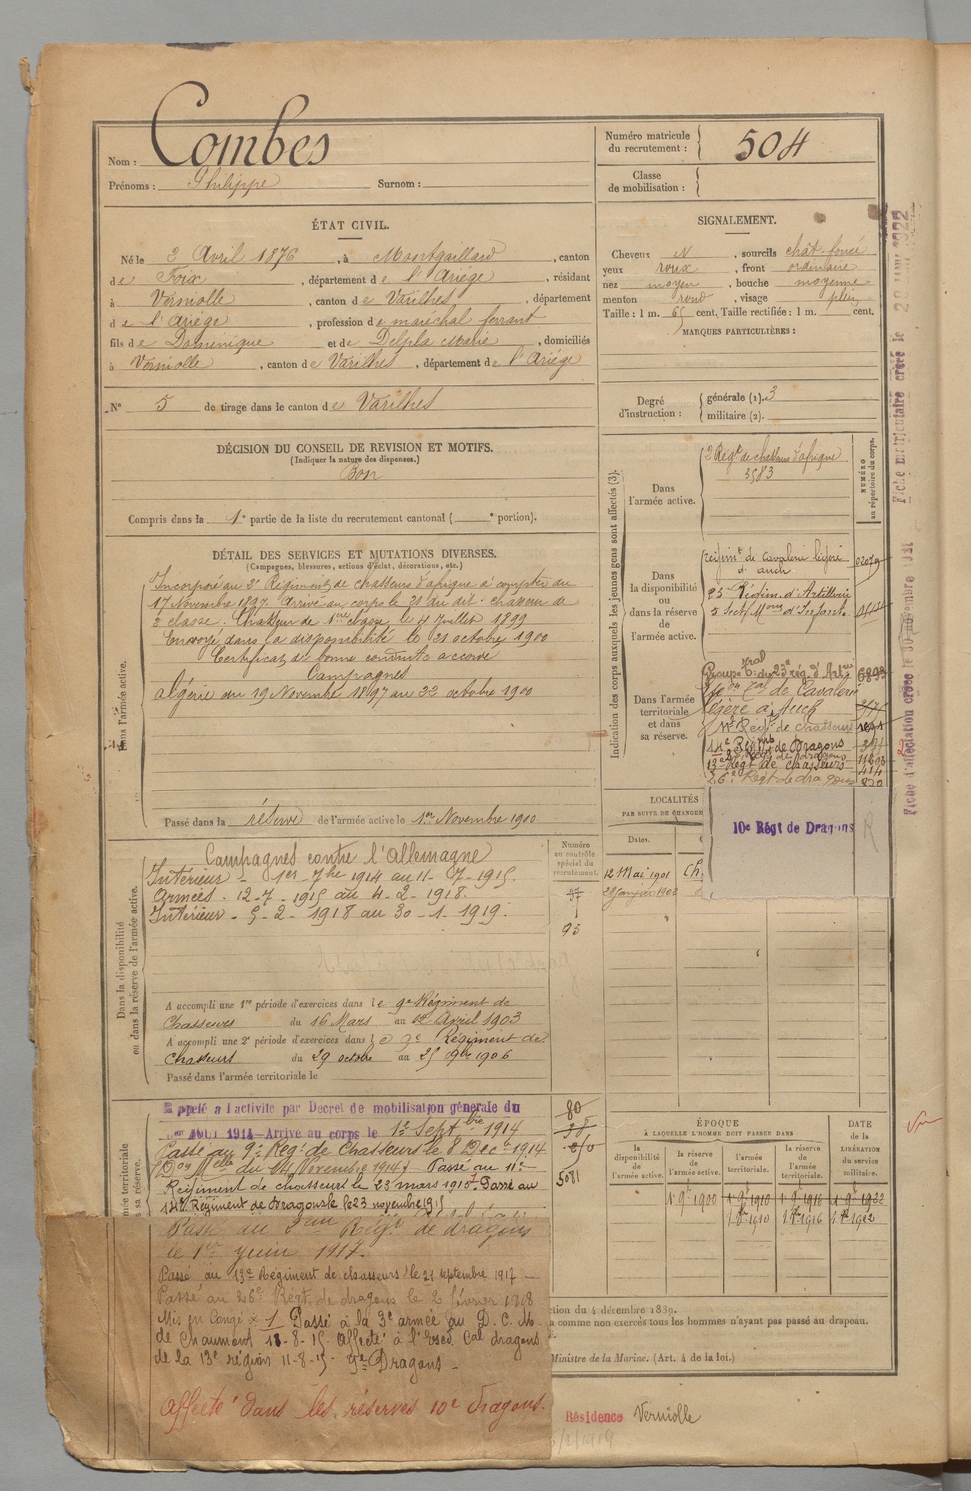 Nom : Combes
Prénoms : Philippe Surnom :
Numéro matricule du recrutement : 504
Classe de mobilisation :
ÉTAT CIVIL.
Né le 3 Avril 1876, à Montgaillard, canton
de Foix, département de l'Ariége, résidant
à Verniolle, canton de Varilhes, département
de l'Ariége, profession de maréchal ferrant
fils de Dominique et de Delpla Marie, domiciliés
à Verniolle, canton de Varilhes, département de l'Ariége
N° 5 de tirage dans le canton de Varilhes
SIGNALEMENT.
Cheveux N, sourcils chât. foncé
yeux roux, front ordinaire
nez moyen, bouche moyenne
menton rond, visage plein
Taille : 1 m. 65 cent, Taille rectifiée : 1 m. cent.
MARQUES PARTICULIÈRES :
Degré d'instruction : générale (1). 3
militaire (2).
DÉCISION DU CONSEIL DE REVISION ET MOTIFS.
(Indiquer la nature des dispenses.)
Bon
Compris dans la 1e partie de la liste du recrutement cantonal ( e portion).
DÉTAIL DES SERVICES ET MUTATIONS DIVERSES.
(Campagnes, blessures, actions d'éclat, décorations, etc.)
Dans l'armée active.
Incorporé au 2e Régiment de chasseurs d'afrique à compter du
17 Novembre 1897. Arrivé au corps le 21 du dit. chasseur de
2e classe. Chasseur de 1ère classe le 4 Juillet 1899
Envoyé dans la disponibilité le 31 octobre 1900
Certificat de bonne conduite accordé
Campagnes
Algérie du 19 Novembre 1897 au 22 octobre 1900
Passé dans la réserve de l'armée active le 1er Novembre 1900
Indication des corps auxquels les jeunes gens sont affectés (3).
NUMÉRO au répertoire du corps.
Dans l'armée active.
2 Régt de chasseurs d'afrique
3583
Dans la disponibilité ou dans la réserve de l'armée active.
régimt de Cavalerie légère
d'auch
23e Régim. d'Artillerie
Dans l'armée territoriale et dans sa réserve.
Groupe tral du 23e rég. d'Artie 5893
de Cavalerie
légère à Auch
Régt de chasseurs
14e Régimt de Dragons
13e Régt de chasseurs
26e Régt de dragons
10e Régt de Dragons
LOCALITÉS
PAR SUITE DE CHANGEM
Dates.
12 Mai 1901 Ch.
29 janvier 1903
Dans la disponibilité ou dans la réserve de l'armée active.
Numéro au contrôle spécial du recrutement.
Campagnes contre l'allemagne
Intérieur - 1er 7bre 1914 au 11-7-1915.
Armées. 12-7-1915 au 4-2-1918.
Intérieur - 5-2-1918 au 30-1-1919.
95
A accompli une 1re période d'exercices dans le 9e Régiment de
Chasseurs du 16 Mars au 12 Avril 1903
A accompli une 2e période d'exercices dans le 9e Régiment de
Chasseurs du 29 octobre au 25 9bre 1906
Passé dans l'armée territoriale le
Rappelé à l'activité par Décret de mobilisation générale du
1er AOUT 1914 – Arrivé au corps le 1er Septbre 1914
Passé au 9e Régt de Chasseurs le 8 Décbre 1914
(Don Melle du 14 Novembre 1914). Passé au 11e
Régiment de chasseurs le 23 mars 1915. Passé au
14e Régiment de Dragons le 23 novembre 1915
80
5081
Passé au Régt de dragons
le 1er juin 1917.
Passé au 13e Régiment de chasseurs le 21 septembre 1917
Passé au 26e Régt de dragons le 2 février 1918
Mis en Congé
Passé à la 3e armée au D.C. Mo
de Chaumont Affecté à l'Esc. Cal dragons
de la 13e région
Dragons
Affecté dans les réserves 10e dragons.
ÉPOQUE
À LAQUELLE L'HOMME DOIT PASSER DANS
la disponibilité de l'armée active.
la réserve de l'armée active.
l'armée territoriale.
la réserve de l'armée territoriale.
DATE de la LIBÉRATION du service militaire.
1 9bre 1900 1 9bre 1910 1 9bre 1916 1 9bre 1922
1 8bre 1910 1 8bre 1916 1 8bre 1922
ction du 4 décembre 1889.
a comme non exercés tous les hommes n'ayant pas passé au drapeau.
Ministre de la Marine. (Art. 4 de la loi.)
Résidence Verniolle
Fiche matriculaire créée le
Fiche d'affectation créée le 30 novembre 1931